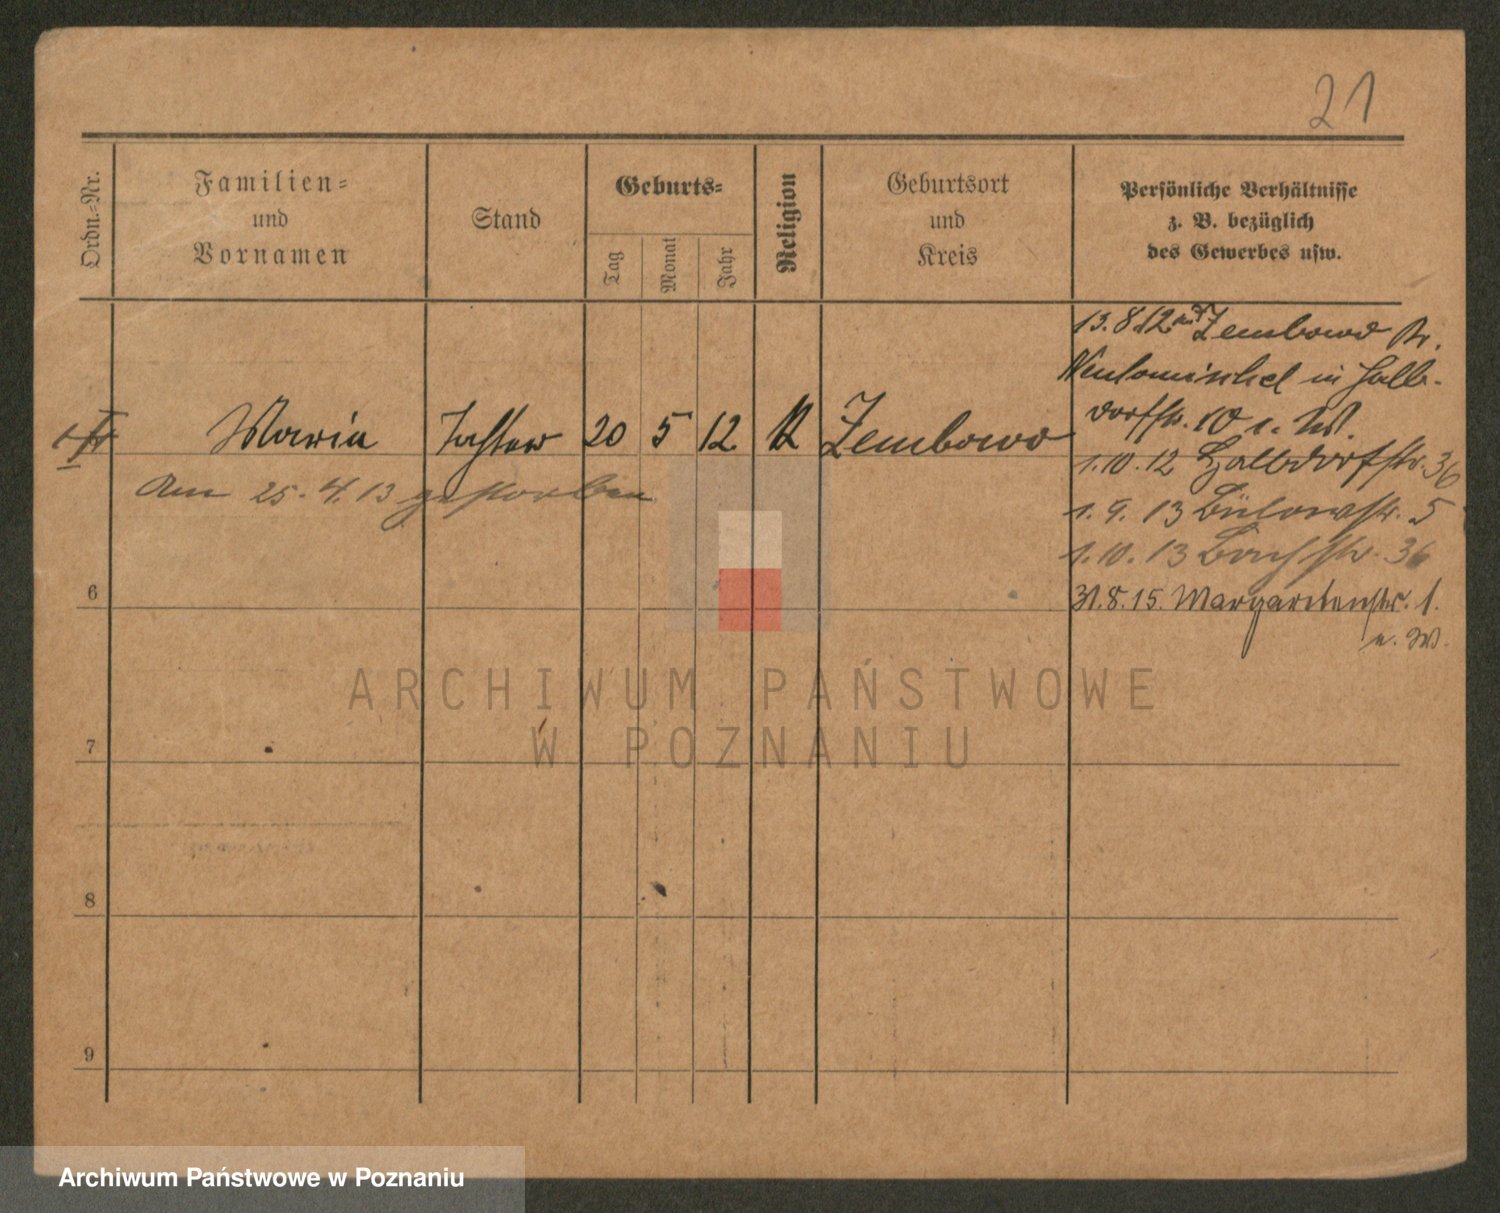 21
Ordn.-Nr.
Familien-
und
Vornamen
Stand
Geburts-
Tag
Monat
Jahr
Religion
Geburtsort
und
Kreis
Persönliche Verhältnisse
z. B. bezüglich
des Gewerbes usw.
13.8.12 Zembowo Kr.
Neutomischel in Halb-
dorfstr. 10 z. W.
Maria Tochter 20 5 12 K Zembowo
1.10.12 Halbdorfstr. 36
Am 25.4.13 gestorben
1.9.13 Bülowstr. 5
1.10.13 Bachstr. 36
6
31.8.15. Margaretenstr. 1.
z. W.
ARCHIWUM PAŃSTWOWE
W POZNANIU
7
8
9
Archiwum Państwowe w Poznaniu